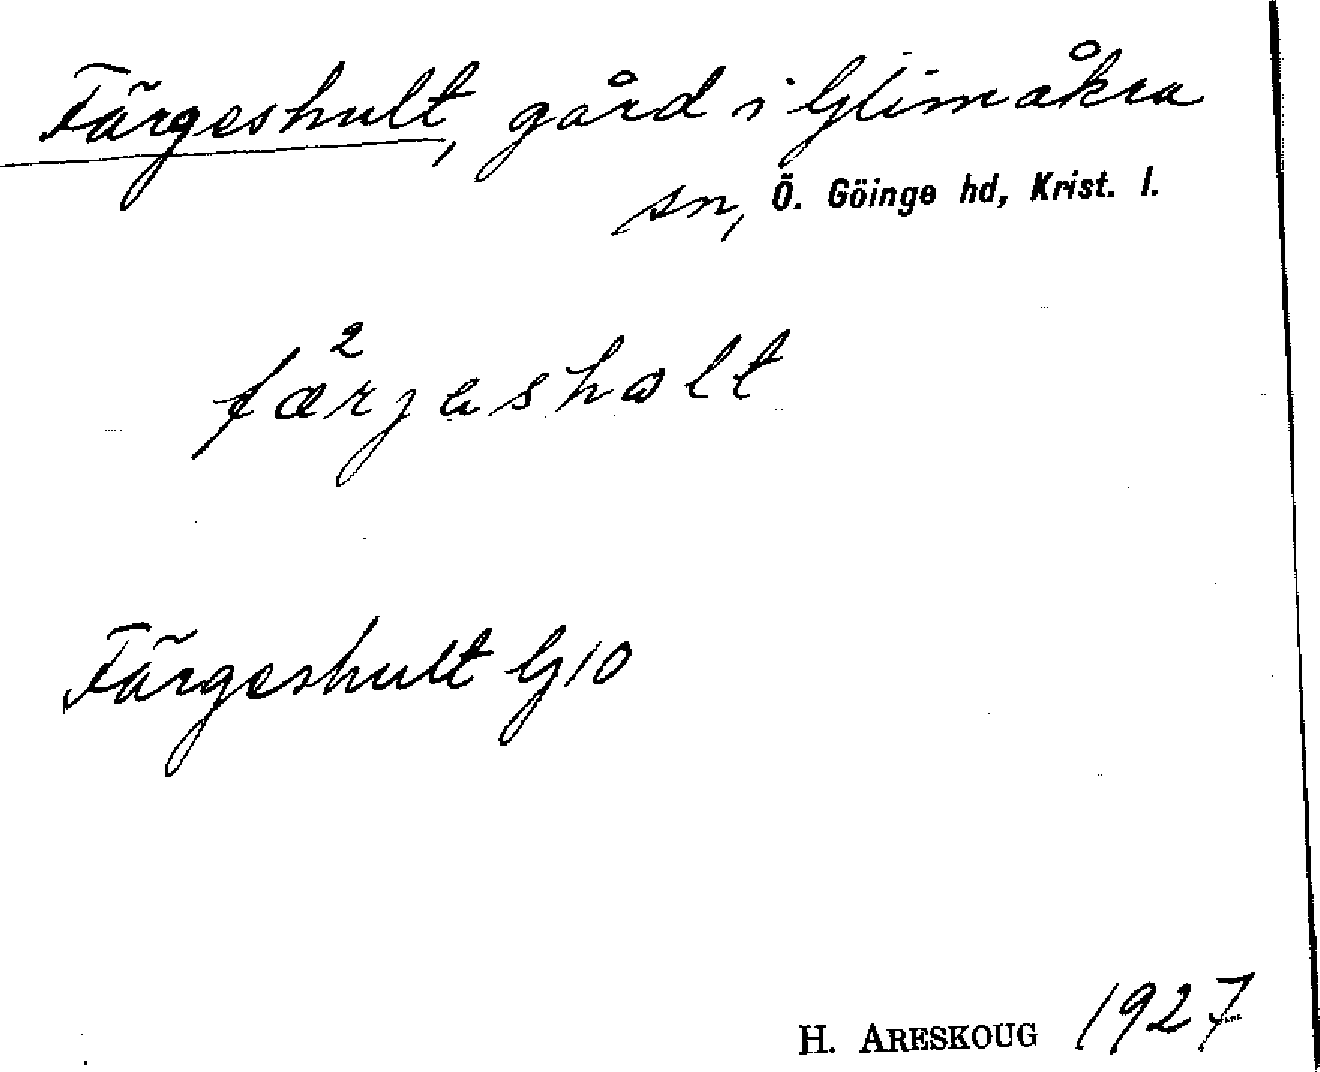 Färgeshult, gård i Glimåkra
sn, Ö. Göinge hd, Krist. l.
2
færjashalt
Färgeshult G10
H. ARESKOUG 1927